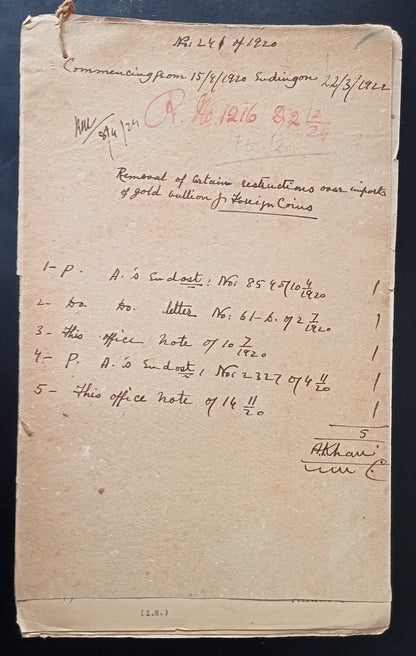 No. 241 of 1920
Commencing from 15/4/1920 Ending on 22/3/1922
R. No. 1216 S 2 12/24
8/4/24
Removal of Certain restrictions over imports
of gold bullion & Foreign Coins
1- P. A.'s Endost: No: 8545/10 4/1920 1
2- Do. Do. letter No: 61-D. of 2 7/1920 1
3- This office note of 10 7/1920 1
4- P. A.'s Endost: No: 2327 of 4 11/20 1
5- This office note of 14 11/20 1
5
A.Khan
(I.H.)